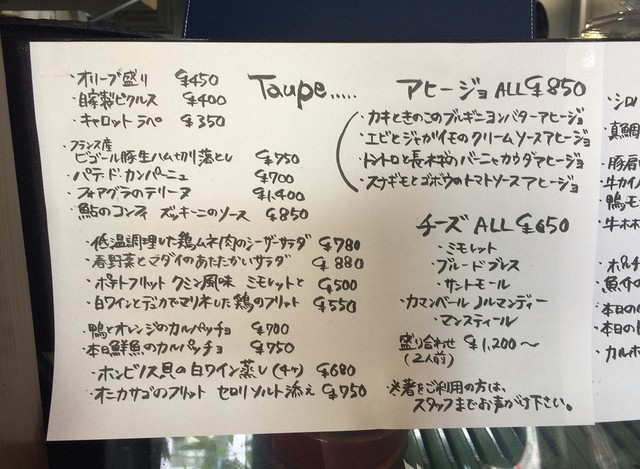 ・オリーブ盛り ¥450
・自家製ピクルス ¥400
・キャロットラペ ¥350
・フランス産
ビゴール豚生ハム切り落とし ¥750
・パテ ド カンパーニュ ¥700
・フォアグラのテリーヌ ¥1,400
・鮎のコンフィ ズッキーニのソース ¥850
・低温調理した鶏ムネ肉のシーザーサラダ ¥780
・春野菜とマダイのあたたかいサラダ ¥880
・ポテトフリット クミン風味 ミモレットと ¥500
・白ワインとデュカでマリネした鶏のフリット ¥550
・鴨とオレンジのカルパッチョ ¥700
・本日鮮魚のカルパッチョ ¥750
・ホンビノス貝の白ワイン蒸し(4ケ) ¥680
・オニカサゴのフリット セロリソルト添え ¥750
Taupe.....
アヒージョ ALL ¥850
・カキときのこのブルギニヨンバターアヒージョ
・エビとジャガイモのクリームソースアヒージョ
・トントロと長ネギのバーニャカウダアヒージョ
・スナギモとゴボウのトマトソースアヒージョ
チーズ ALL ¥650
・ミモレット
・ブルー ド ブレス
・サントモール
・カマンベール ノルマンディー
・マンスティール
盛り合わせ ¥1,200〜
(2人前)
※箸をご利用の方は、
スタッフまでお声がけ下さい。
・シロ
・真鯛
・豚肩
・牛カイ
・鴨モ
・牛ホホ
・ポルチ
・魚介の
・本日の
・本日の
・カルボ